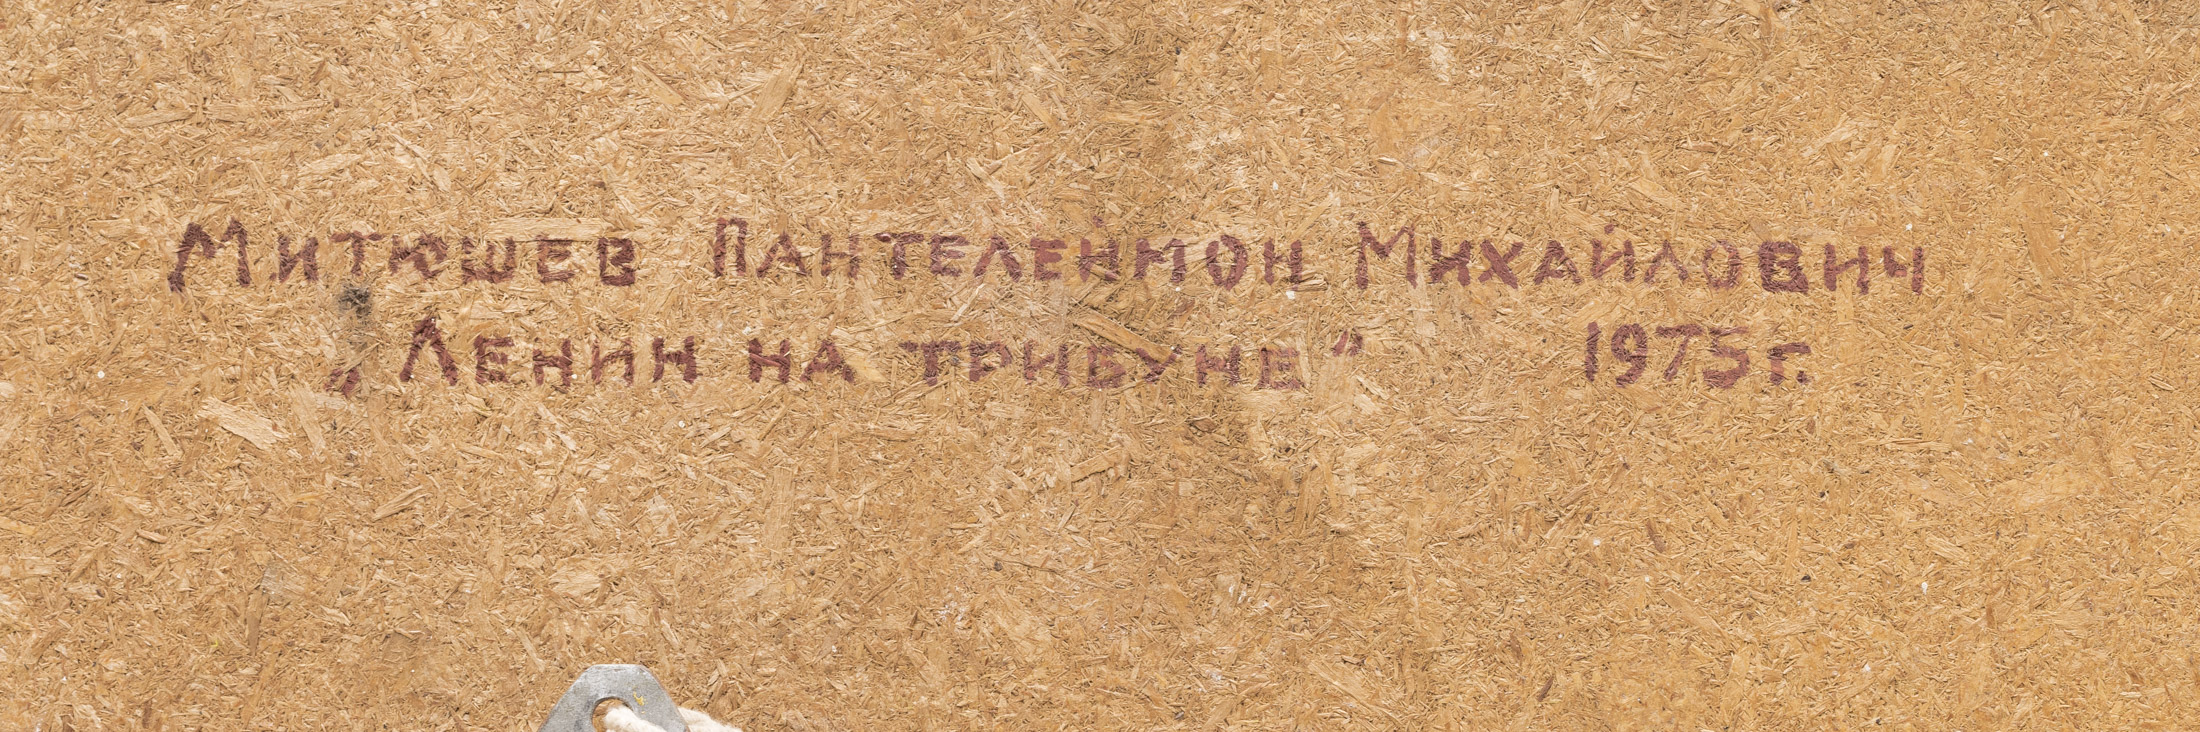 Митюшев Пантелеймон Михайлович
„Ленин на трибуне” 1975 г.